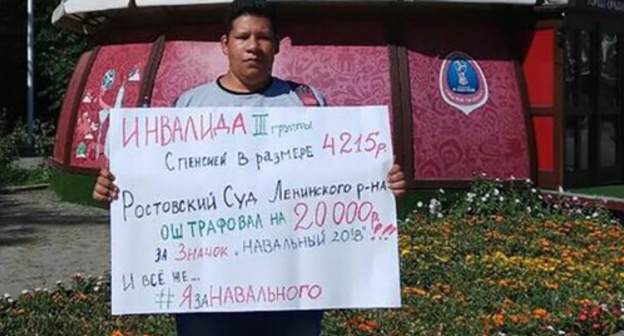 ИНВАЛИДА III группы
С ПЕНСИЕЙ В РАЗМЕРЕ 4215 р.
РОСТОВСКИЙ СУД ЛЕНИНСКОГО р-НА
ОШТРАФОВАЛ НА 20000р.
ЗА ЗНАЧОК „НАВАЛЬНЫЙ 2018" !!!
И ВСЁ ЖЕ...
#ЯзаНАВАЛЬНОГО